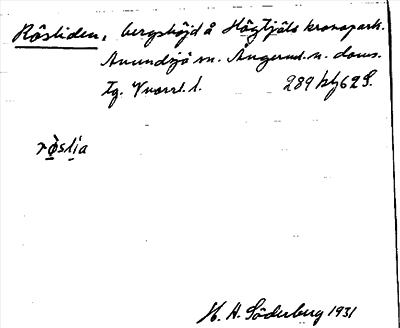 Råsliden, bergshöjd å Högtjäls kronopark.
Anundsjö sn. Ångerml. n. doms.
tg. Vnorrl. l. 289 kbf62S.
rå̀slia
H. A. Söderberg 1931